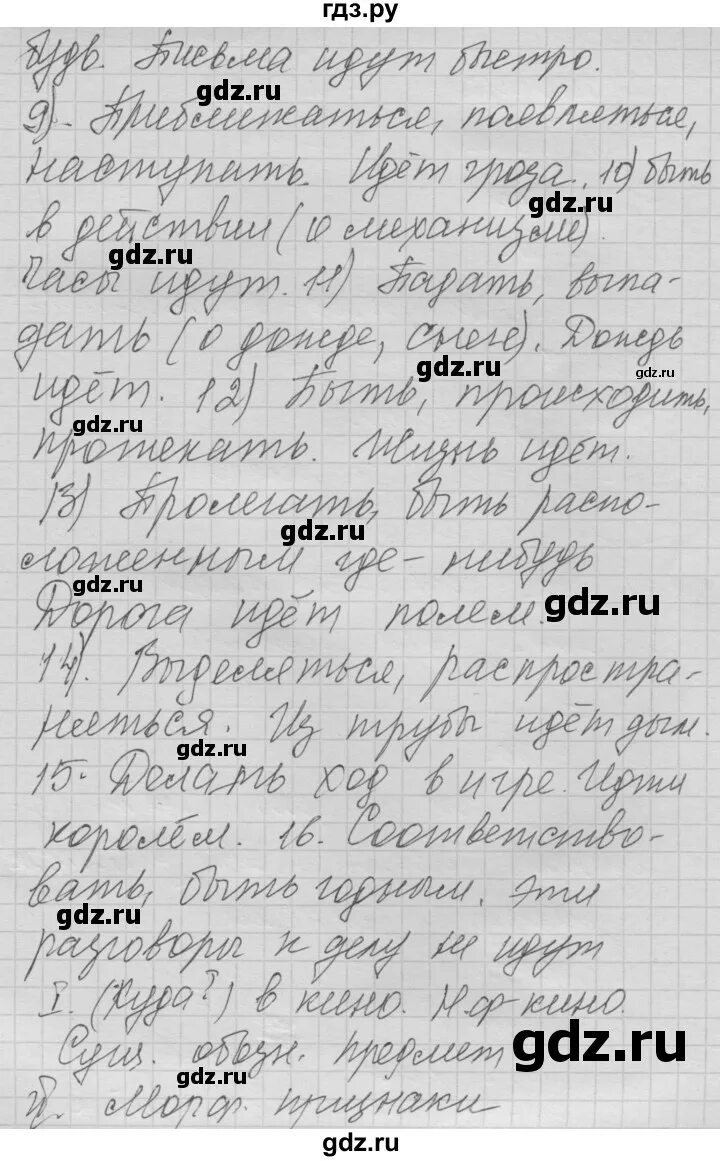 гдз.ру
будь. Письма идут быстро.
gdz.ru
9). Приближаться, появляться,
наступать. Идёт гроза. 10) быть
gdz.ru
в действии (о механизме).
gdz.ru
Часы идут. 11) Падать, выпа-
дать (о дожде, снеге). Дождь
gdz.ru
gdz.ru
идёт. 12) Быть, происходить,
gdz.ru
протекать. Жизнь идёт.
13) Пролегать, быть распо-
gdz.ru
ложенным где-нибудь
Дорога идёт полем.
gdz.ru
14). Выделяться, распростра-
няться. Из трубы идёт дым.
gdz.ru
15. Делать ход в игре. Иди
королём. 16. Соответство-
gdz.ru
вать, быть годным. Эти
gdz.ru
разговоры к делу не идут
I. (Куда?) в кино. Н.ф-кино.
Сущ. обозн. предмет
gdz.ru
gdz.ru
II. Морф. признаки
gdz.ru